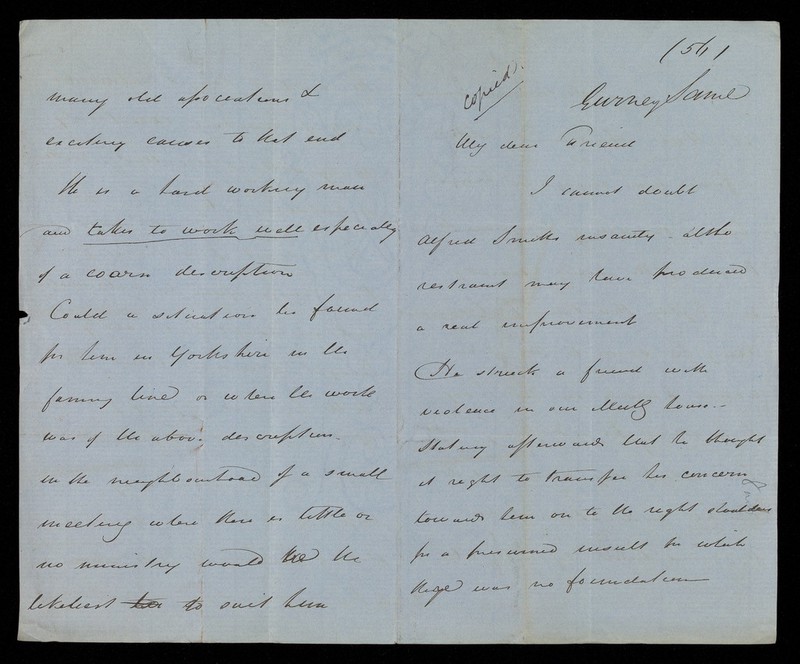 many old associations &
exciting causes to that end
He is a hard working man
and takes to work well especially
of a coarse description
Could a situation be found
for him in Yorkshire in the
farming line or where the work
was of the above description
in the neighbourhood of a small
meeting where there is little or
no ministry would be the
likeliest to suit him
(51)
copied.
Gurney Saml
My dear Friend
I cannot doubt
Alfred Smiths insanity altho
restraint may have produced
a real improvement
He struck a friend with
violence in our Meetg house -
stating afterwards that he thought
it right to transfer his concern
towards him on to the right shoulders
for a presumed insult for which
there was no foundation